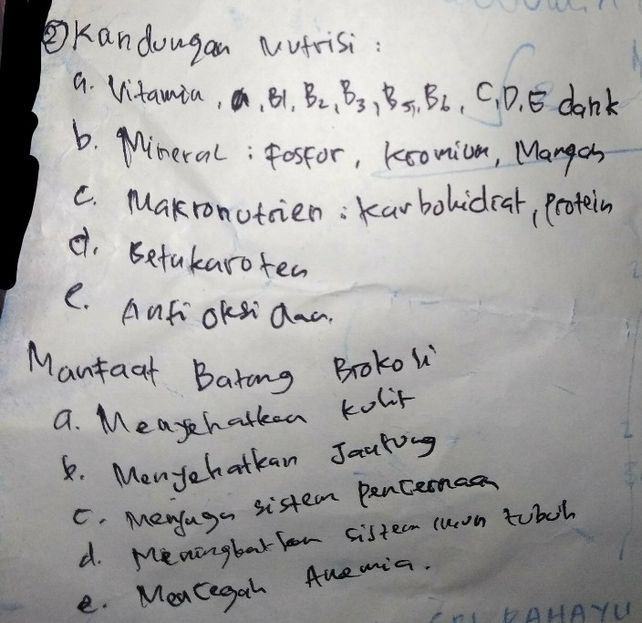 ② Kandungan Nutrisi :
a. Vitamin, A, B1, B2, B3, B5, B6, C, D, E dan K
b. Mineral : Fosfor, Kromium, Mangan
c. Makronutrien : Karbohidrat, Protein
d. Betakaroten
e. Anti oksi dan.
Manfaat Batang Brokoli
a. Menyehatkan Kulit
b. Menyehatkan Jantung
c. Menjaga sistem pencernaan
d. Meningkatkan sistem imun tubuh
e. Mencegah Anemia.
RAHAYU